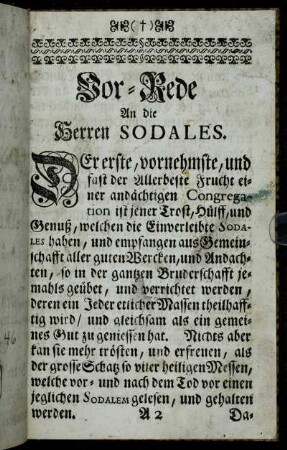 (†)
Vor-Rede
An die
Herren SODALES.
DEr erste, vornehmste, und
fast der Allerbeste Frucht ei-
ner andächtigen Congrega-
tion ist jener Trost, Hülff, und
Genuß, welchen die Einverleibte SODA-
LES haben, und empfangen aus Gemein-
schafft aller guten Wercken, und Andach-
ten, so in der gantzen Bruderschafft je-
mahls geübet, und verrichtet werden,
deren ein Jeder etlicher Massen theilhaff-
tig wird/ und gleichsam als ein gemei-
nes Gut zu geniessen hat. Nichts aber
kan sie mehr trösten, und erfreuen, als
der grosse Schatz so viler heiligen Messen,
welche vor- und nach dem Tod vor einen
jeglichen SODALEM gelesen, und gehalten
werden. A 2 Da-
46